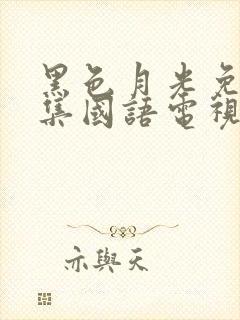 黑色月光免
集國語電視
亦與天